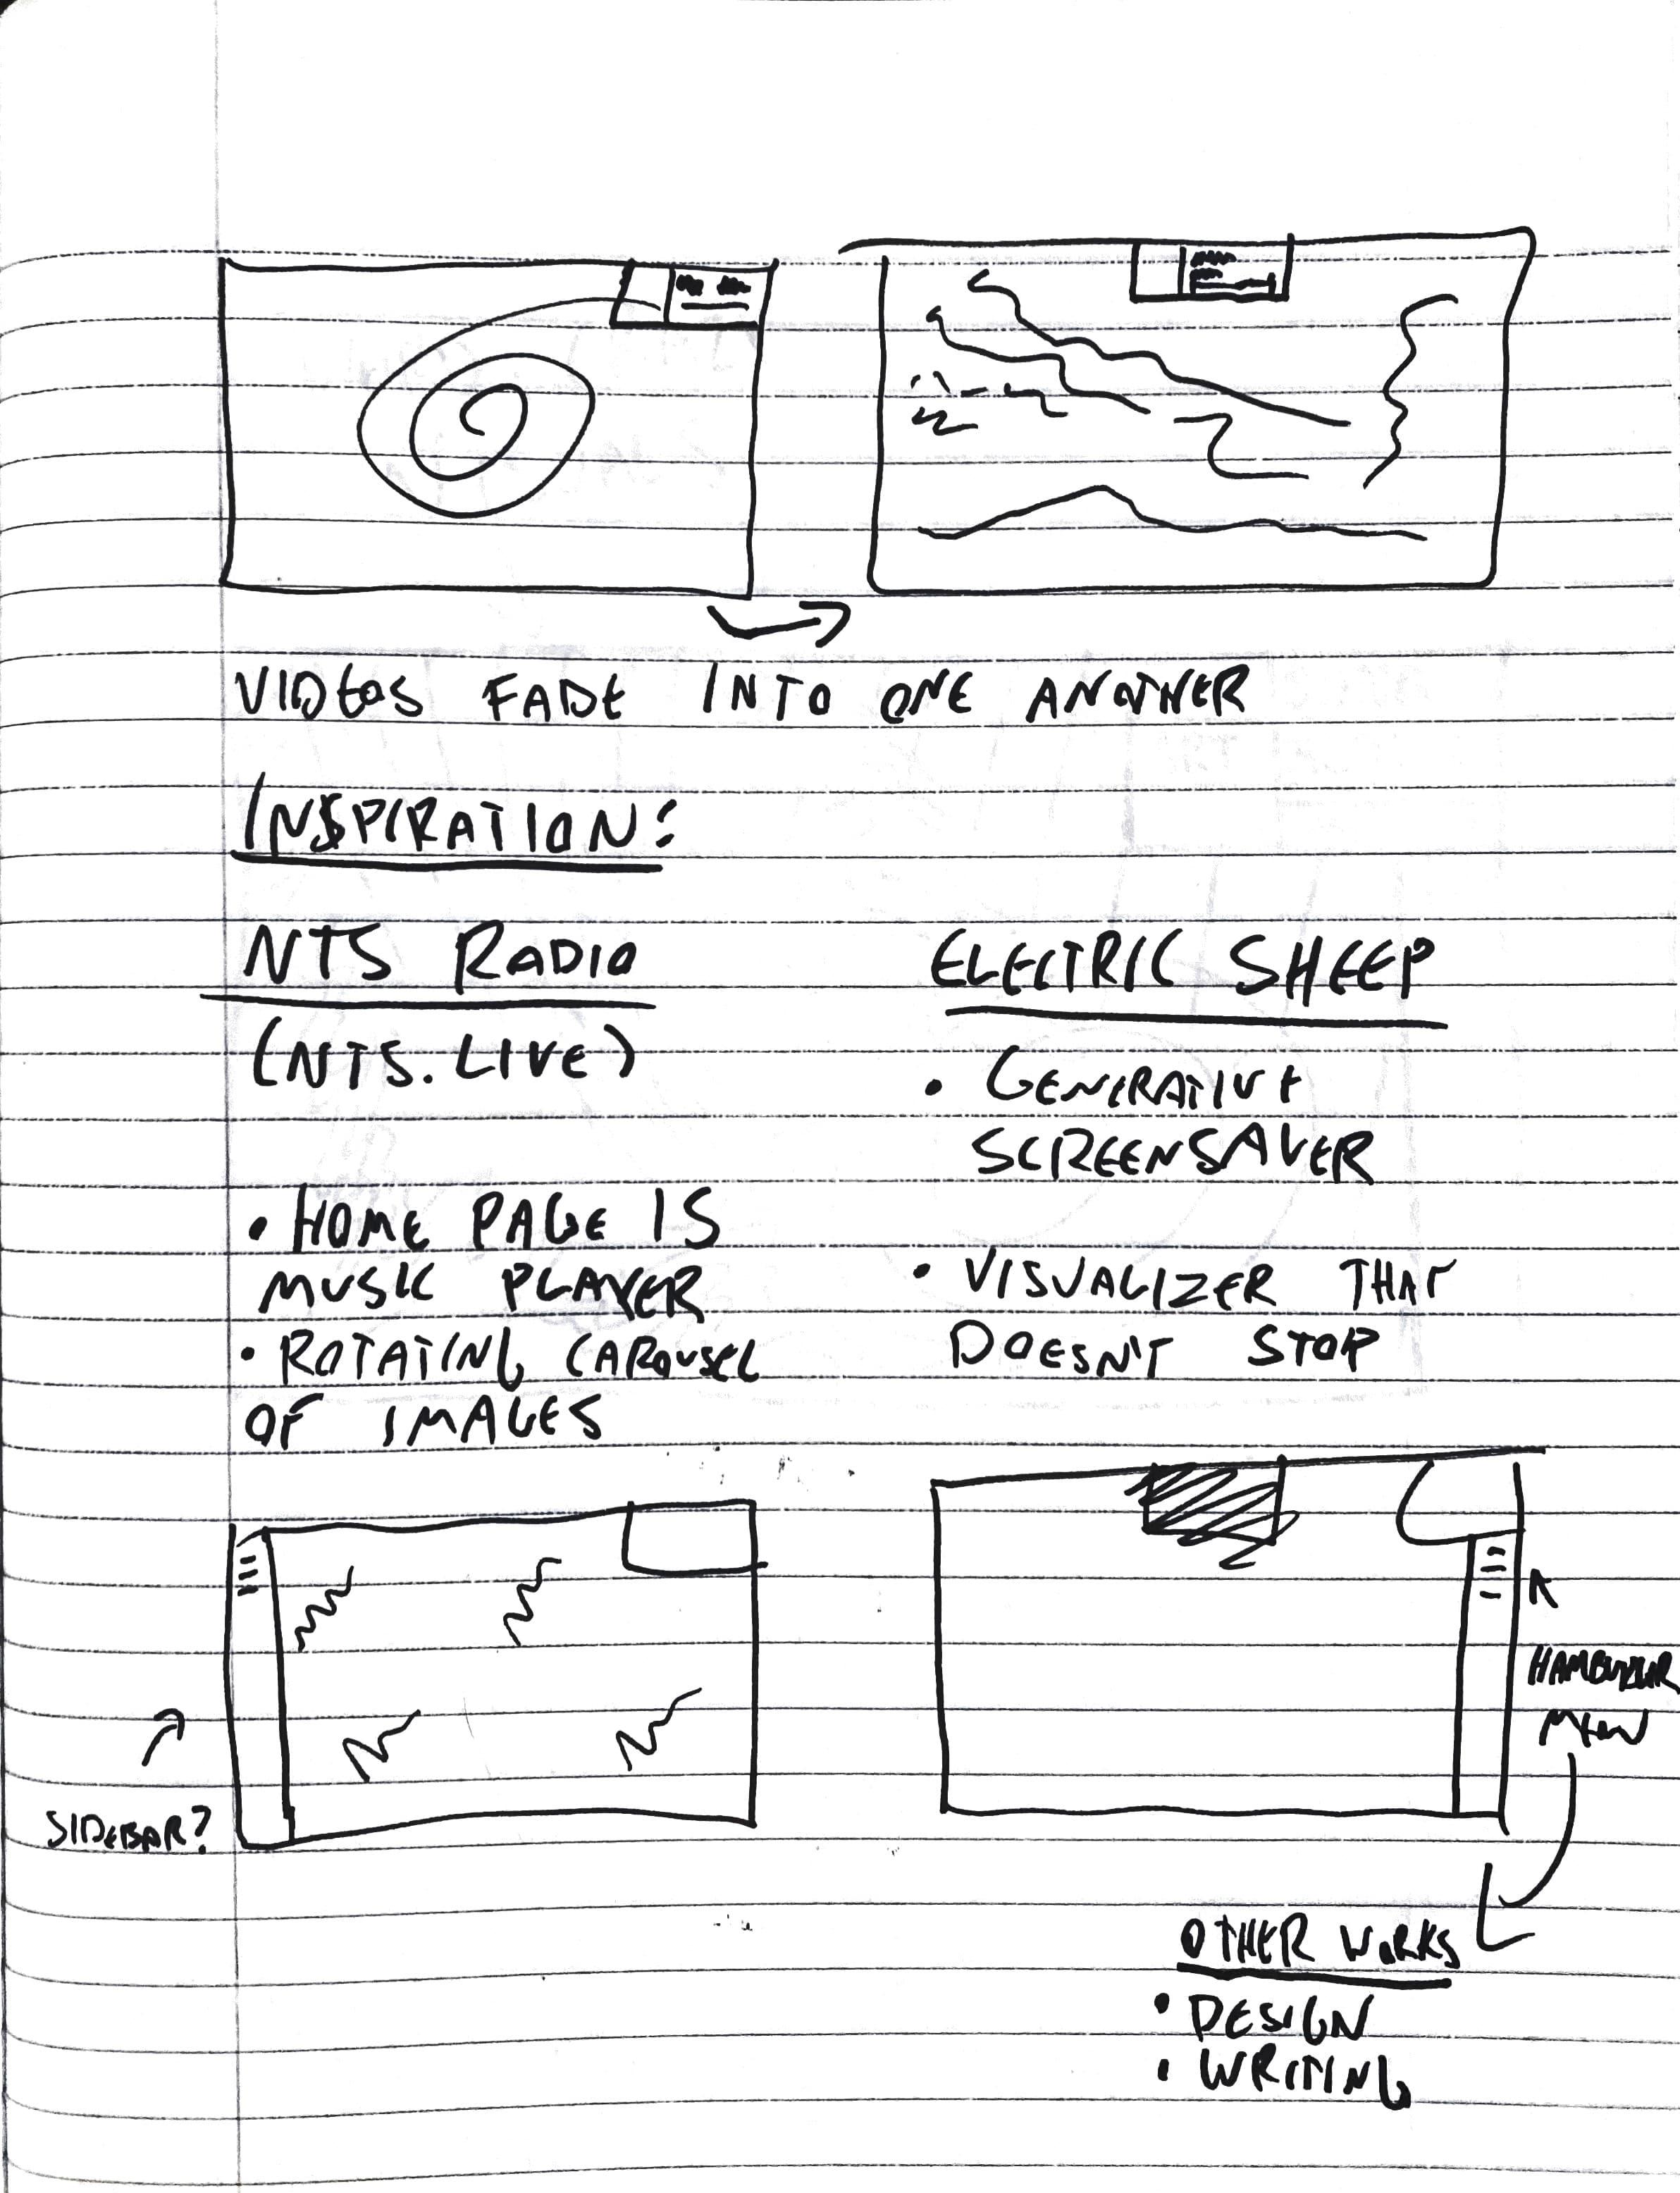 VIDEOS FADE INTO ONE ANOTHER
INSPIRATION:
NTS RADIO
(NTS.LIVE)
• HOME PAGE IS
MUSIC PLAYER
• ROTATING CAROUSEL
OF IMAGES
ELECTRIC SHEEP
• GENERATIVE
SCREENSAVER
• VISUALIZER THAT
DOESN'T STOP
SIDEBAR?
HAMBURGER
MENU
OTHER WORKS
• DESIGN
• WRITING